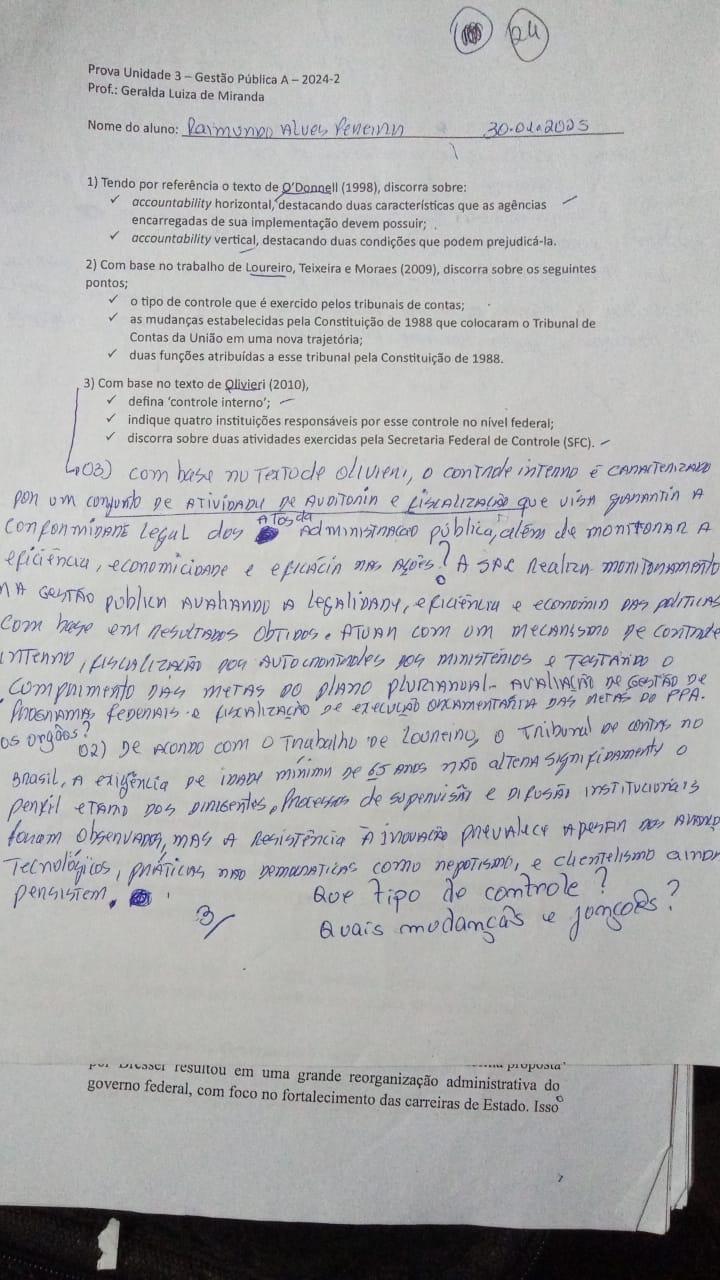 24
Prova Unidade 3 – Gestão Pública A – 2024-2
Prof.: Geralda Luiza de Miranda
Nome do aluno: Raimundo Alves 30.01.2025
1) Tendo por referência o texto de O'Donnell (1998), discorra sobre:
✓ accountability horizontal, destacando duas características que as agências
encarregadas de sua implementação devem possuir;
✓ accountability vertical, destacando duas condições que podem prejudicá-la.
2) Com base no trabalho de Loureiro, Teixeira e Moraes (2009), discorra sobre os seguintes
pontos;
✓ o tipo de controle que é exercido pelos tribunais de contas;
✓ as mudanças estabelecidas pela Constituição de 1988 que colocaram o Tribunal de
Contas da União em uma nova trajetória;
✓ duas funções atribuídas a esse tribunal pela Constituição de 1988.
3) Com base no texto de Olivieri (2010),
✓ defina 'controle interno';
✓ indique quatro instituições responsáveis por esse controle no nível federal;
✓ discorra sobre duas atividades exercidas pela Secretaria Federal de Controle (SFC).
03) com base no texto de Olivieri, o controle interno é caracterizado
por um conjunto de atividade de auditoria e fiscalização que visa garantir a
conformidade legal dos atos da Administração pública, além de monitorar a
eficiência, economicidade e eficácia nas ações. ? A realiza monitoramento
na gestão pública avaliando a legalidade, eficiência e economia das políticas
com base em resultados obtidos. Atuar com um mecanismo de controle
interno, fiscalização dos dos ministérios e testando o
comprimento das metas do plano plurianual. avaliação de gestão de
programas federais e fiscalização de execução orçamentária das metas do PPA.
os orgãos?
02) De acordo com o trabalho de Loureiro, o Tribunal de contas no
Brasil, a exigência de idade mínima de 65 anos não altera significamente o
perfil etário dos dirigentes. Processos de supervisão e difusão institucionais
foram observados, mas a resistência à inovação prevalece apesar dos
tecnológicos, práticas não democráticas como nepotismo, e clientelismo
persistem.
Que tipo de controle?
3/
Quais mudanças e ?
governo federal, com foco no fortalecimento das carreiras de Estado. Isso
resultou em uma grande reorganização administrativa do
7